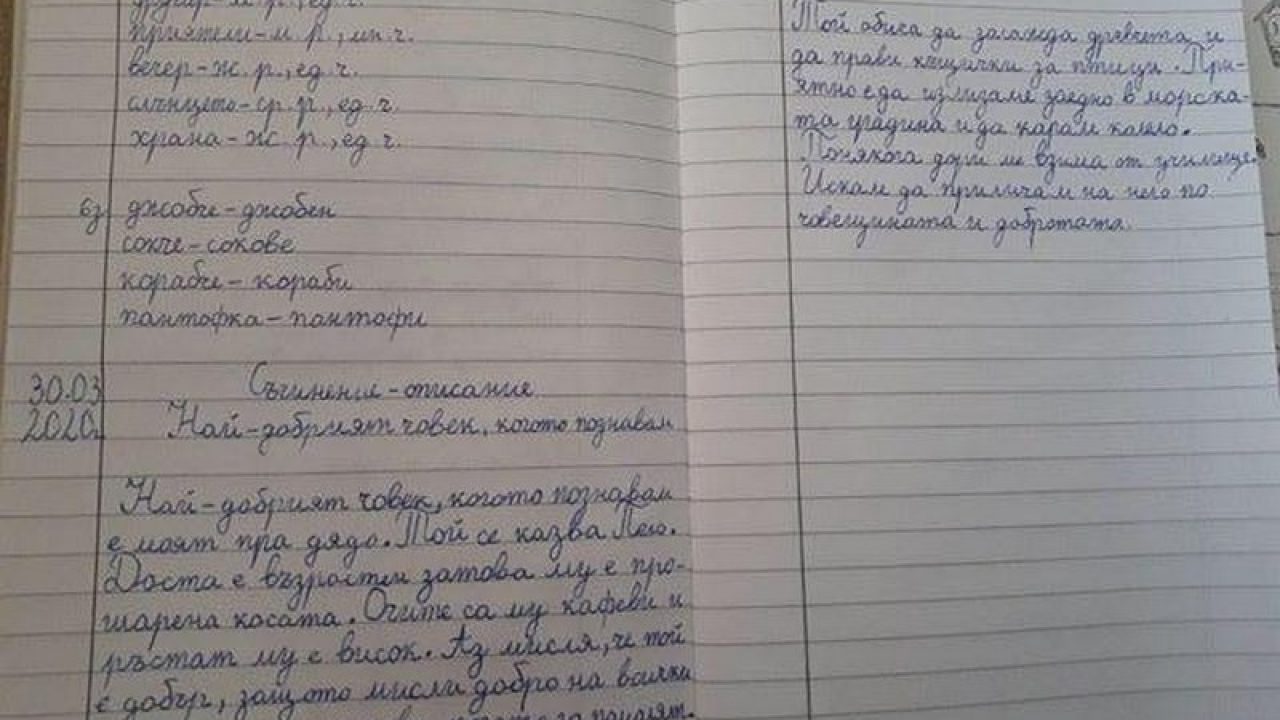 другар-м.р., ед.ч.
приятели-м.р., мн.ч.
вечер-ж.р., ед.ч.
слънцето-ср.р., ед.ч.
храна-ж.р., ед.ч.
6з джобче-джобен
сокче-сокове
корабче-кораби
пантофка-пантофи
30.03
2020г.
Съчинение-описание
Най-добрият човек, когото познавам
Най-добрият човек, когото познавам
е моят пра дядо. Той се казва
Доста е възрастен затова му е про-
шарена косата. Очите са му кафеви и
ръстат му е висок. Аз мисля, че той
е добър, защото мисли добро на всички
Той обиса да засажда дръвчета и
да прави къщички за птици. При-
ятно е да излизаме заедно в морска-
та градина и да карам колело.
Понякога дори ме взима от училище.
Искам да приличам на него по
човещината и добротата.